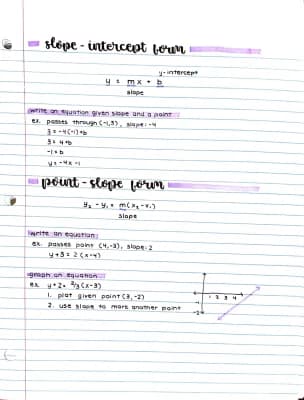 slope-intercept form
y-intercept
y = mx + b
slope
write an equation given slope and a point
ex. passes through (-1,3), slope: -4
3 = -4(-1)+b
3 = 4+b
-1 = b
y = -4x -1
point-slope form
y₂ - y₁ = m(x₂ - x₁)
slope
write an equation
ex. passes point (4,-3), slope: 2
y+3 = 2(x-4)
graph an equation
ex. y+2 = 2/3(x-3)
1. plot given point (3,-2)
2. use slope to mark another point
1 2 3 4
-2